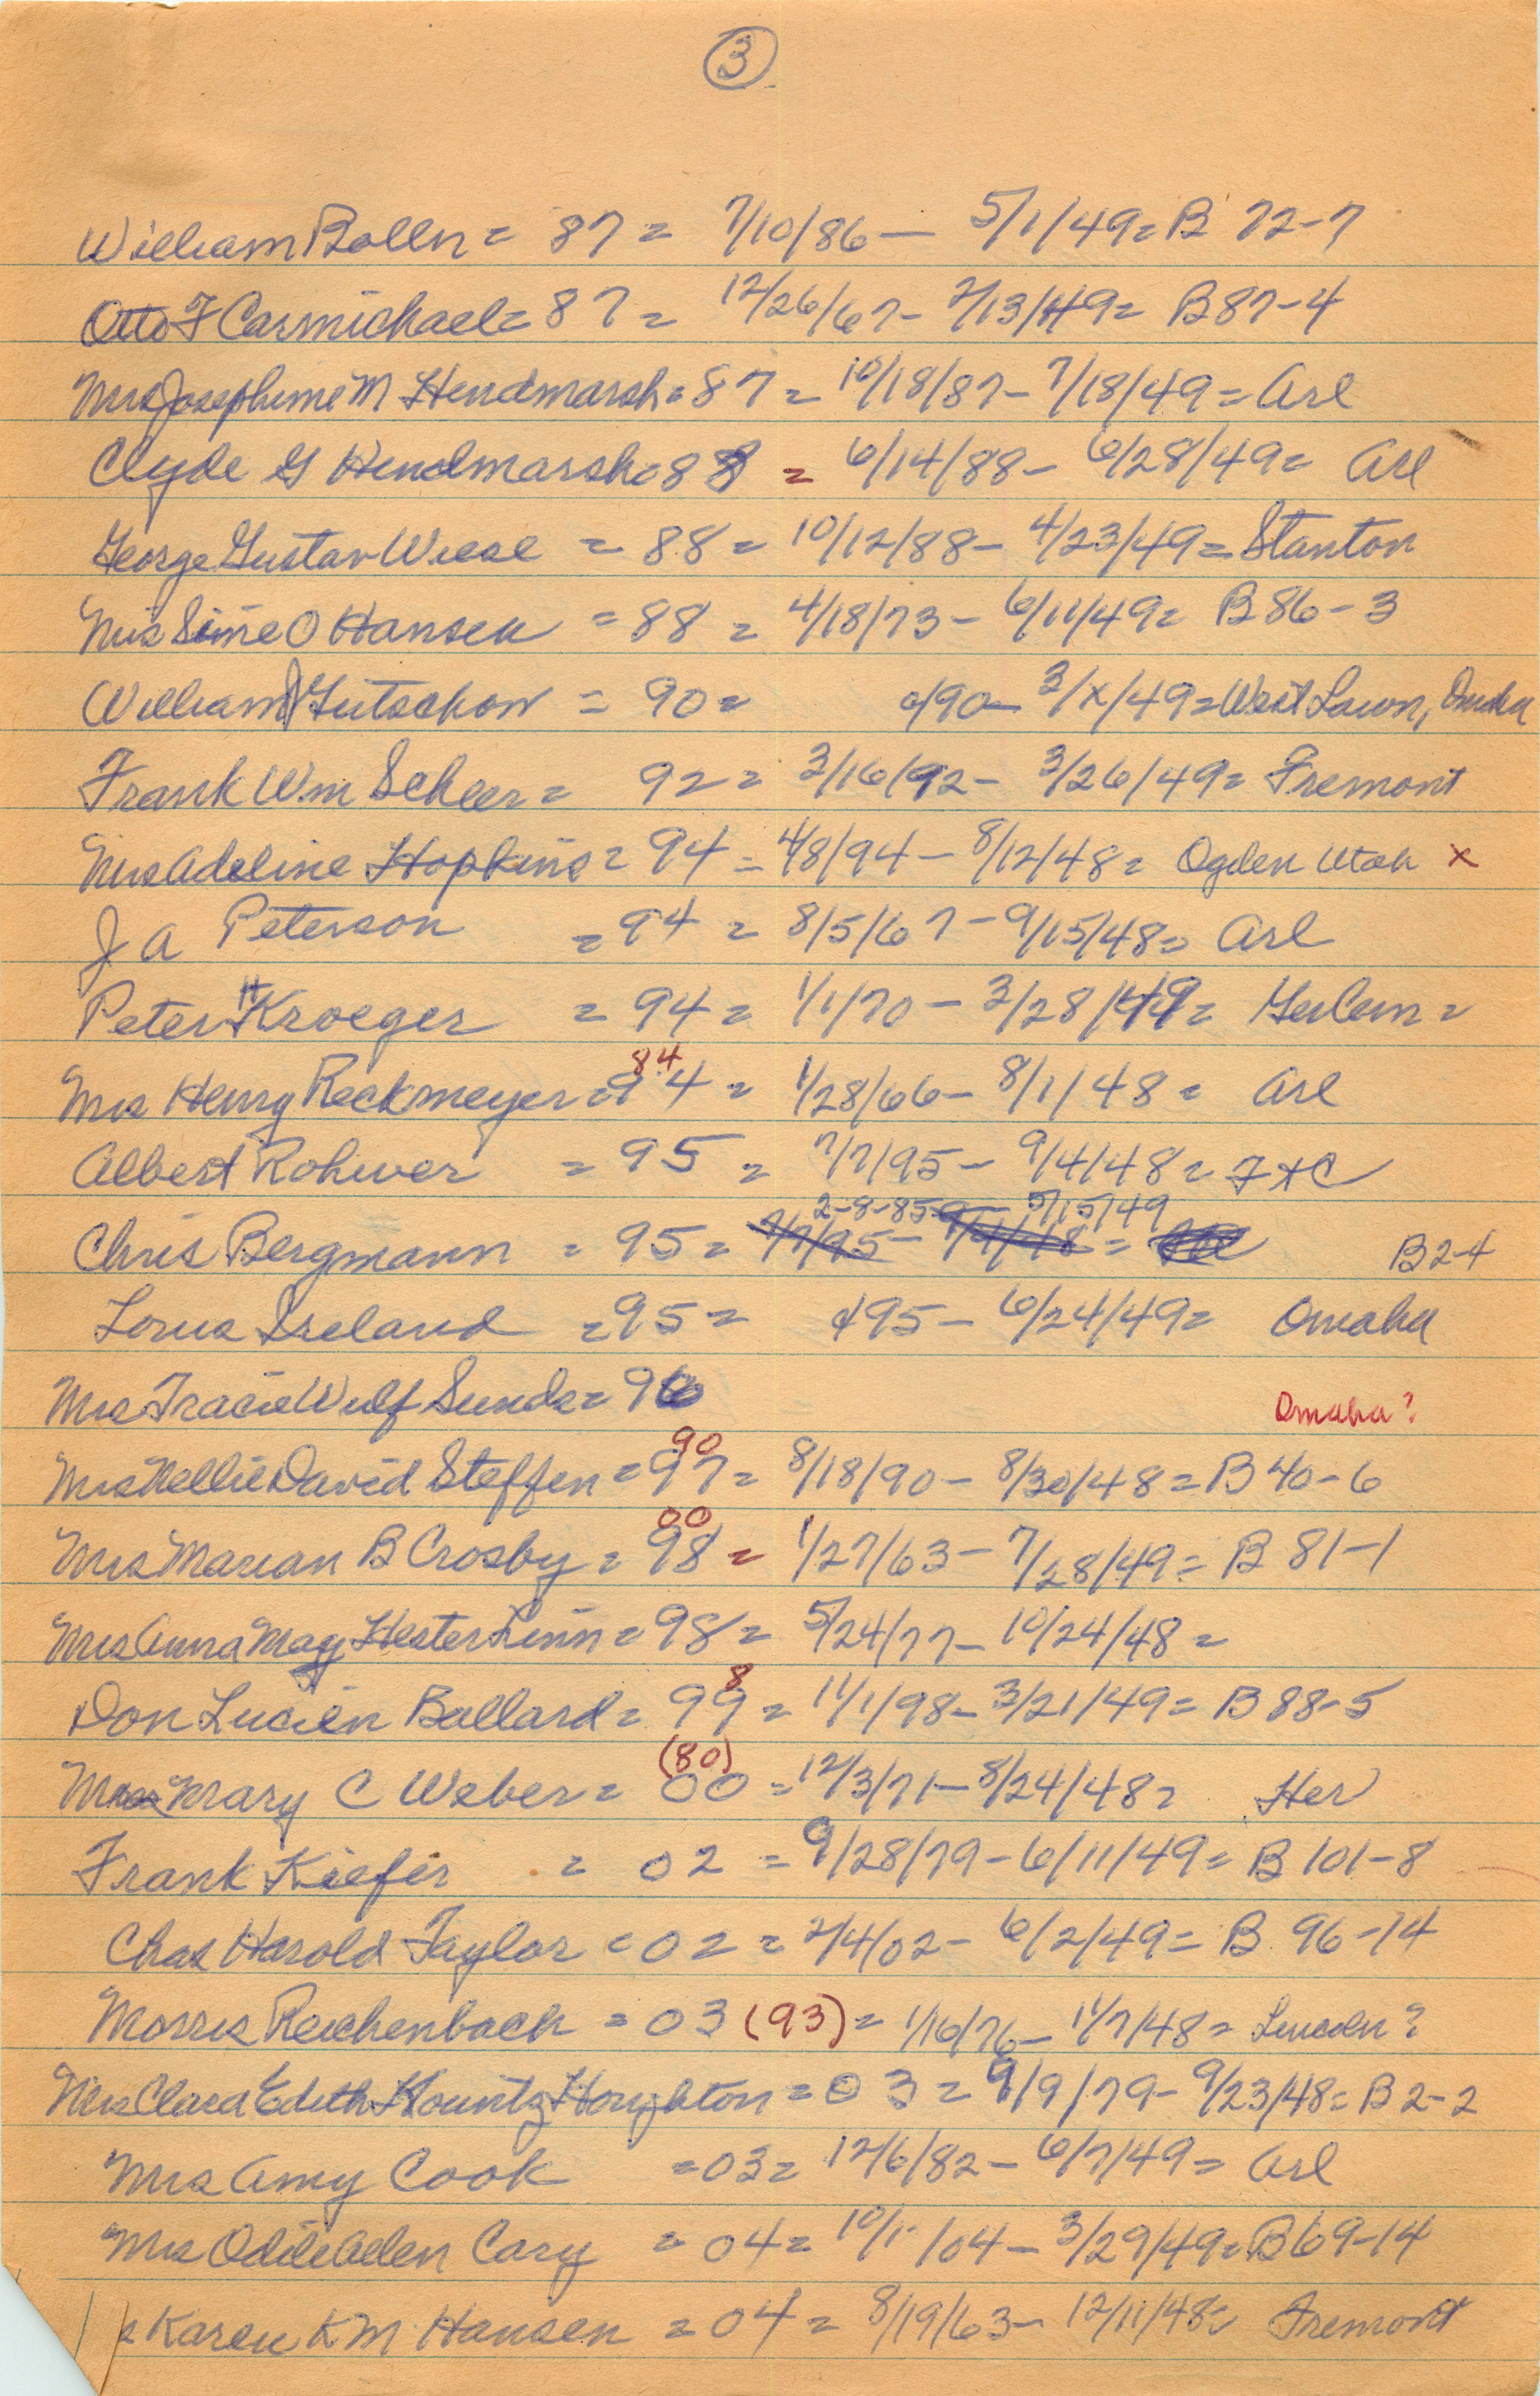 3
William Bolln = 87 = 7/10/86 — 5/1/49 = B 72-7
Otto F Carmichael = 87 = 12/26/67 - 2/13/49 = B 87-4
Mrs Josephine M Hendmarsh = 87 = 10/18/87 - 7/18/49 = Arl
Clyde G Hindmarsh = 88 = 6/14/88 - 6/28/49 = Arl
George Gustav Wiese = 88 = 10/12/88 - 4/23/49 = Stanton
Mrs Sine O Hansen = 88 = 4/18/73 - 6/11/49 = B 86-3
William J Gutschow = 90 = 90 - 3/x/49 = West Lawn, Omaha
Frank Wm Scheer = 92 = 3/16/92 - 3/26/49 = Fremont
Mrs Adeline Hopkins = 94 = 4/8/94 - 8/12/48 = Ogden Utah x
J A Peterson = 94 = 8/5/67 - 9/15/48 = Arl
Peter H Kroeger = 94 = 1/1/70 - 3/28/49 = =
84
Mrs Henry Reckmeyer = 94 = 1/28/66 - 8/1/48 = Arl
Albert Rohwer = 95 = 7/7/95 - 9/4/48 = F & C
2-8-85 - 5/15/49
Chris Bergmann = 95 = 7/7/95 - 9/4/48 = B 2-4
Lorus Ireland = 95 = 95 - 6/24/49 = Omaha
Mrs Tracie Wulf Sunds = 96 Omaha?
90
Mrs Nellie David Steffen = 97 = 8/18/90 - 8/30/48 = B 40-6
00
Mrs Marian B Crosby = 98 = 1/27/63 - 7/28/49 = B 81-1
Mrs Anna May Hester Linn = 98 = 5/24/77 - 10/24/48 =
8
Don Lucien Ballard = 99 = 11/1/98 - 3/21/49 = B 88-5
(80)
Mary C Weber = 00 = 12/3/71 - 8/24/48 = Her
Frank Kiefer = 02 = 9/28/79 - 6/11/49 = B 101-8
Chas Harold Taylor = 02 = 2/4/02 - 6/2/49 = B 96-14
Morris Reichenbach = 03 (93) = 1/16/76 - 11/7/48 = Lincoln?
Mrs Clara Edith Kountz Houghton = 03 = 9/9/79 - 9/23/48 = B 2-2
Mrs Amy Cook = 03 = 12/6/82 - 6/7/49 = Arl
Mrs Odile Allen Cary = 04 = 10/1/04 - 3/29/49 = B 69-14
s Karen K M Hansen = 04 = 8/19/63 - 12/11/48 = Fremont